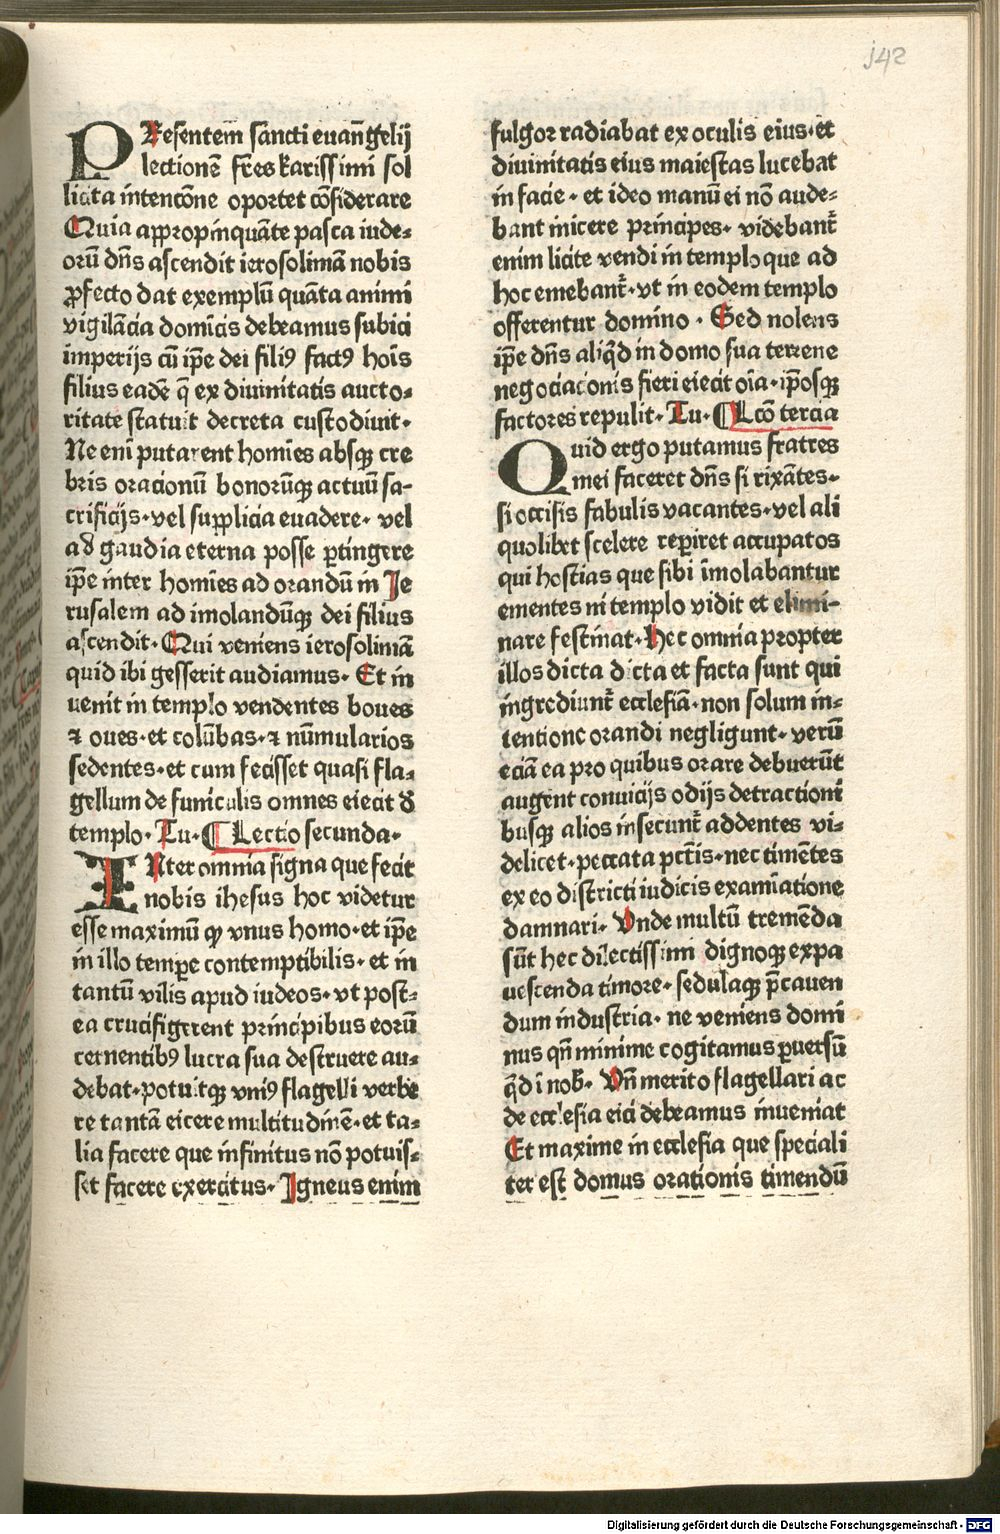 j42
PResentem sancti euāngelij
lectionē fr̄es karissimi sol
licita intencōne oportet cōsiderare
Quia appropinquāte pasca iude⸗
orū dn̄s ascendit ierosolimā nobis
ꝓfecto dat exemplū quāta animi
vigilācia domīcis debeamus subici
imperijs cū ip̄e dei filiꝰ factꝰ hoīs
filius eadē q̄ ex diuinitatis aucto⸗
ritate statuit decreta custodiuit.
Ne enī putarent homīes absqꝫ cre
bris oracionū bonorūqꝫ actuū sa-
crificijs. vel supplicia euadere. vel
ad gaudia eterna posse ꝑtingere
ip̄e inter homīes ad orandū in Je
rusalem ad imolandūqꝫ dei filius
ascendit. Qui veniens ierosolimā
quid ibi gesserit audiamus. Et in
uenit in templo vendentes boues
⁊ oues. et colūbas. ⁊ nūmularios
sedentes. et cum fecisset quasi fla⸗
gellum de funiculis omnes eiecit d̄
templo. Tu. ¶ Lectio secunda.
INter omnia signa que fecit
nobis ihesus hoc videtur
esse maximū ꝙ vnus homo. et ip̄e
in illo temꝑe contemptibilis. et in
tantū vilis apud iudeos. vt post⸗
ea crucifigerent principibus eorū
cernentibꝰ lucra sua destruere au⸗
debat. potuitqꝫ vniꝰ flagelli verbe
re tantā eicere multitudinē. et ta⸗
lia facere que infinitus nō potuis⸗
set facere exercitus. Igneus enim
fulgor radiabat ex oculis eius. et
diuinitatis eius maiestas lucebat
in facie. et ideo manū ei nō aude⸗
bant inicere principes. videbant̄
enim licite vendi in templo que ad
hoc emebant̄. vt in eodem templo
offerentur domino. Sed nolens
ip̄e dn̄s aliq̇d in domo sua terrene
negociacionis fieri eiecit oīa. ip̄osqꝫ
factores repulit. Tu. ¶ Lcō tercia
Quid ergo putamus fratres
mei faceret dn̄s si rixātes.
si occisis fabulis vacantes. vel ali
quolibet scelere reꝑiret accupatos
qui hostias que sibi īmolabantur
ementes in templo vidit et elimi-
nare festinat. Hec omnia propter
illos dicta dicta et facta sunt qui
ingrediunt̄ ecclesiā. non solum in⸗
tentione orandi negligunt. verū
eciā ea pro quibus orare debuerūt
augent conuicijs odijs detractioni
busqꝫ alios insecunt̄ addentes vi⸗
delicet. peccata pctīs. nec timētes
ex eo districti iudicis examīatione
damnari. Unde multū tremēda
sūt hec dilectissimi dignoqꝫ expa
uescenda timore. sedulaqꝫ p̄cauen
dum industria. ne veniens domi
nus qn̄ minime cogitamus ꝑuersū
q̇d ī nob̄. Un̄ merito flagellari ac
de ecclesia eici debeamus inueniat
Et maxime in ecclesia que speciali
ter est domus orationis timendū
Digitalisierung gefördert durch die Deutsche Forschungsgemeinschaft - DFG